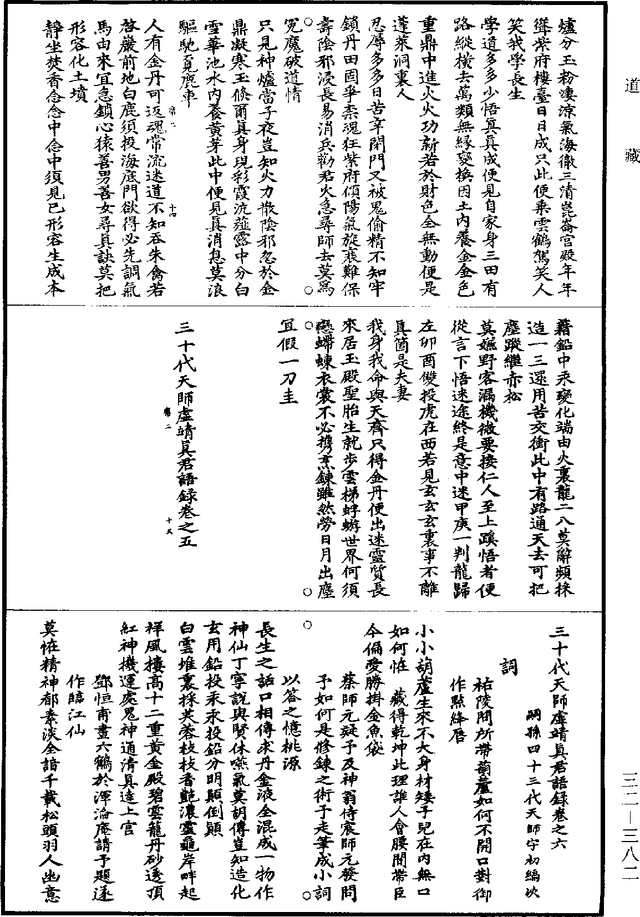 道藏
爐分玉粉凄涼氣海徹三清崑崙宮殿年年
聳紫府樓臺日日成只此便乘雲鶴駕笑人
笑我學長生
學道多多少悟真真成便見自家身三田有
路縱橫去萬類無緣變換因土内養金金色
重鼎中進火火功新若於財色全無動便是
蓬萊洞裏人
忍辱多多日苦辛閑門又被鬼偷精不知牢
鎖丹田固爭柰魂狂紫府傾陽氣旋衰難保
壽陰邪浸長易消兵勸君火急尋師去莫為
冤魔破道情
只見神爐當子夜豈知火力散陰邪忽於金
鼎凝寒玉倏爾真身現彩霞沆瀣露中分白
雪華池水内養黃芽此中便見真消息莫浪
驅馳覓鹿車
人有金丹可返魂常流迷道不知吞朱禽若
啓巖前地白鹿須投海底門欲得必先調氣
馬由來宜急鎖心猿善男善女尋真訣莫把
形容化土墳
靜坐焚香念念中念中須見已形容生成本
藉鉛中汞變化端由火裏龍二八莫辭頻採
造一三還用苦交衝此中有路通天去可把
塵蹤繼赤松
莫嫌野客漏機微要接仁人至上蹊悟者便
從言下悟迷途終是意中迷甲庚一判龍歸
左卯酉雙投虎在西若見玄玄玄裏事不離
真箇是夫妻
我身我命與天齊只得金丹便出迷靈質長
來居玉殿聖胎生就步雲梯蜉蝣世界何須
戀蟒蝀衣裳不必携烹鍊雖然勞日月出塵
宜假一刀圭
三十代天師虛靖真君語錄卷之五
三十代天師虛靖真君語錄卷之六
嗣孫四十三代天師宇初編次
詞
祐陵問所帶葫蘆如何不開口對御
作點絳唇
小小葫蘆生來不大身材矮子兒在内無口
如何恠　藏得乾坤此理誰人會腰間帶臣
今偏愛勝掛金魚袋
蔡師元疑予及神翁侍宸師元發問
予如何是修鍊之術予走筆成小詞
以答之憶桃源
長生之話口相傳求丹金液全混成一物作
神仙丁寧說與賢休嚥氣莫胡傳豈知造化
玄用鉛投汞汞投鉛分明顛倒顛
白雲堆裏採芙蓉枝枝香豔濃靈龜岸畔起
祥風樓高十二重黃金殿碧雲籠丹砂透頂
紅神機運處鬼神通清真達上宮
鄧恒甫畫六鶴於渾淪庵請予題遂
作臨江仙
莫恠精神都素淡全諳千載松頭羽人幽意
三二—三八二